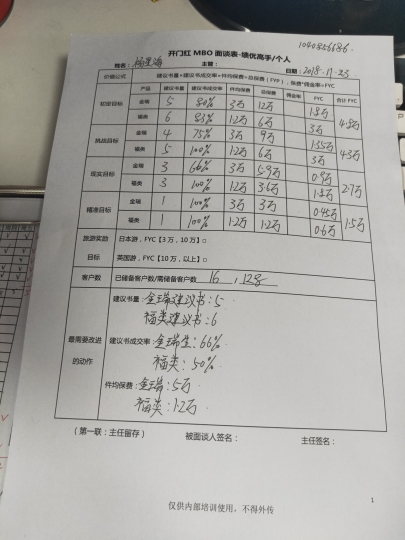 1040856686.
开门红 MBO 面谈表-绩优高手/个人
姓名： 主管： 日期：2018.11.23
价值公式 建议书量*建议书成交率*件均保费=总保费（FYP），保费*佣金率=FYC
产品 建议书量 建议书成交率 件均保费 总保费 佣金率 FYC 合计 FYC
初定目标 金瑞 5 80% 3万 12万 1.8万 4.8万
福类 6 83% 1.2万 6万 3万
挑战目标 金瑞 4 75% 3万 9万 1.35万 4.3万
福类 5 100% 1.2万 6万 3万
现实目标 金瑞 3 66% 3万 5.9万 0.9万 2.7万
福类 3 100% 1.2万 3.6万 1.8万
精准目标 金瑞 1 100% 3万 3万 0.45万 1.5万
福类 1 100% 1.2万 1.2万 0.6万
旅游奖励 日本游，FYC【3万，10万】□
目标 英国游，FYC【10万，以上】□
客户数 已储备客户数/需储备客户数 16，12名
最需要改进的动作
建议书量：金瑞建议书：5
福类建议书：6
建议书成交率：金瑞生：66%
福类：50%
件均保费：金瑞：5万
福类：1.2万
（第一联：主任留存） 被面谈人签名： 主任签名：
1
仅供内部培训使用，不得外传